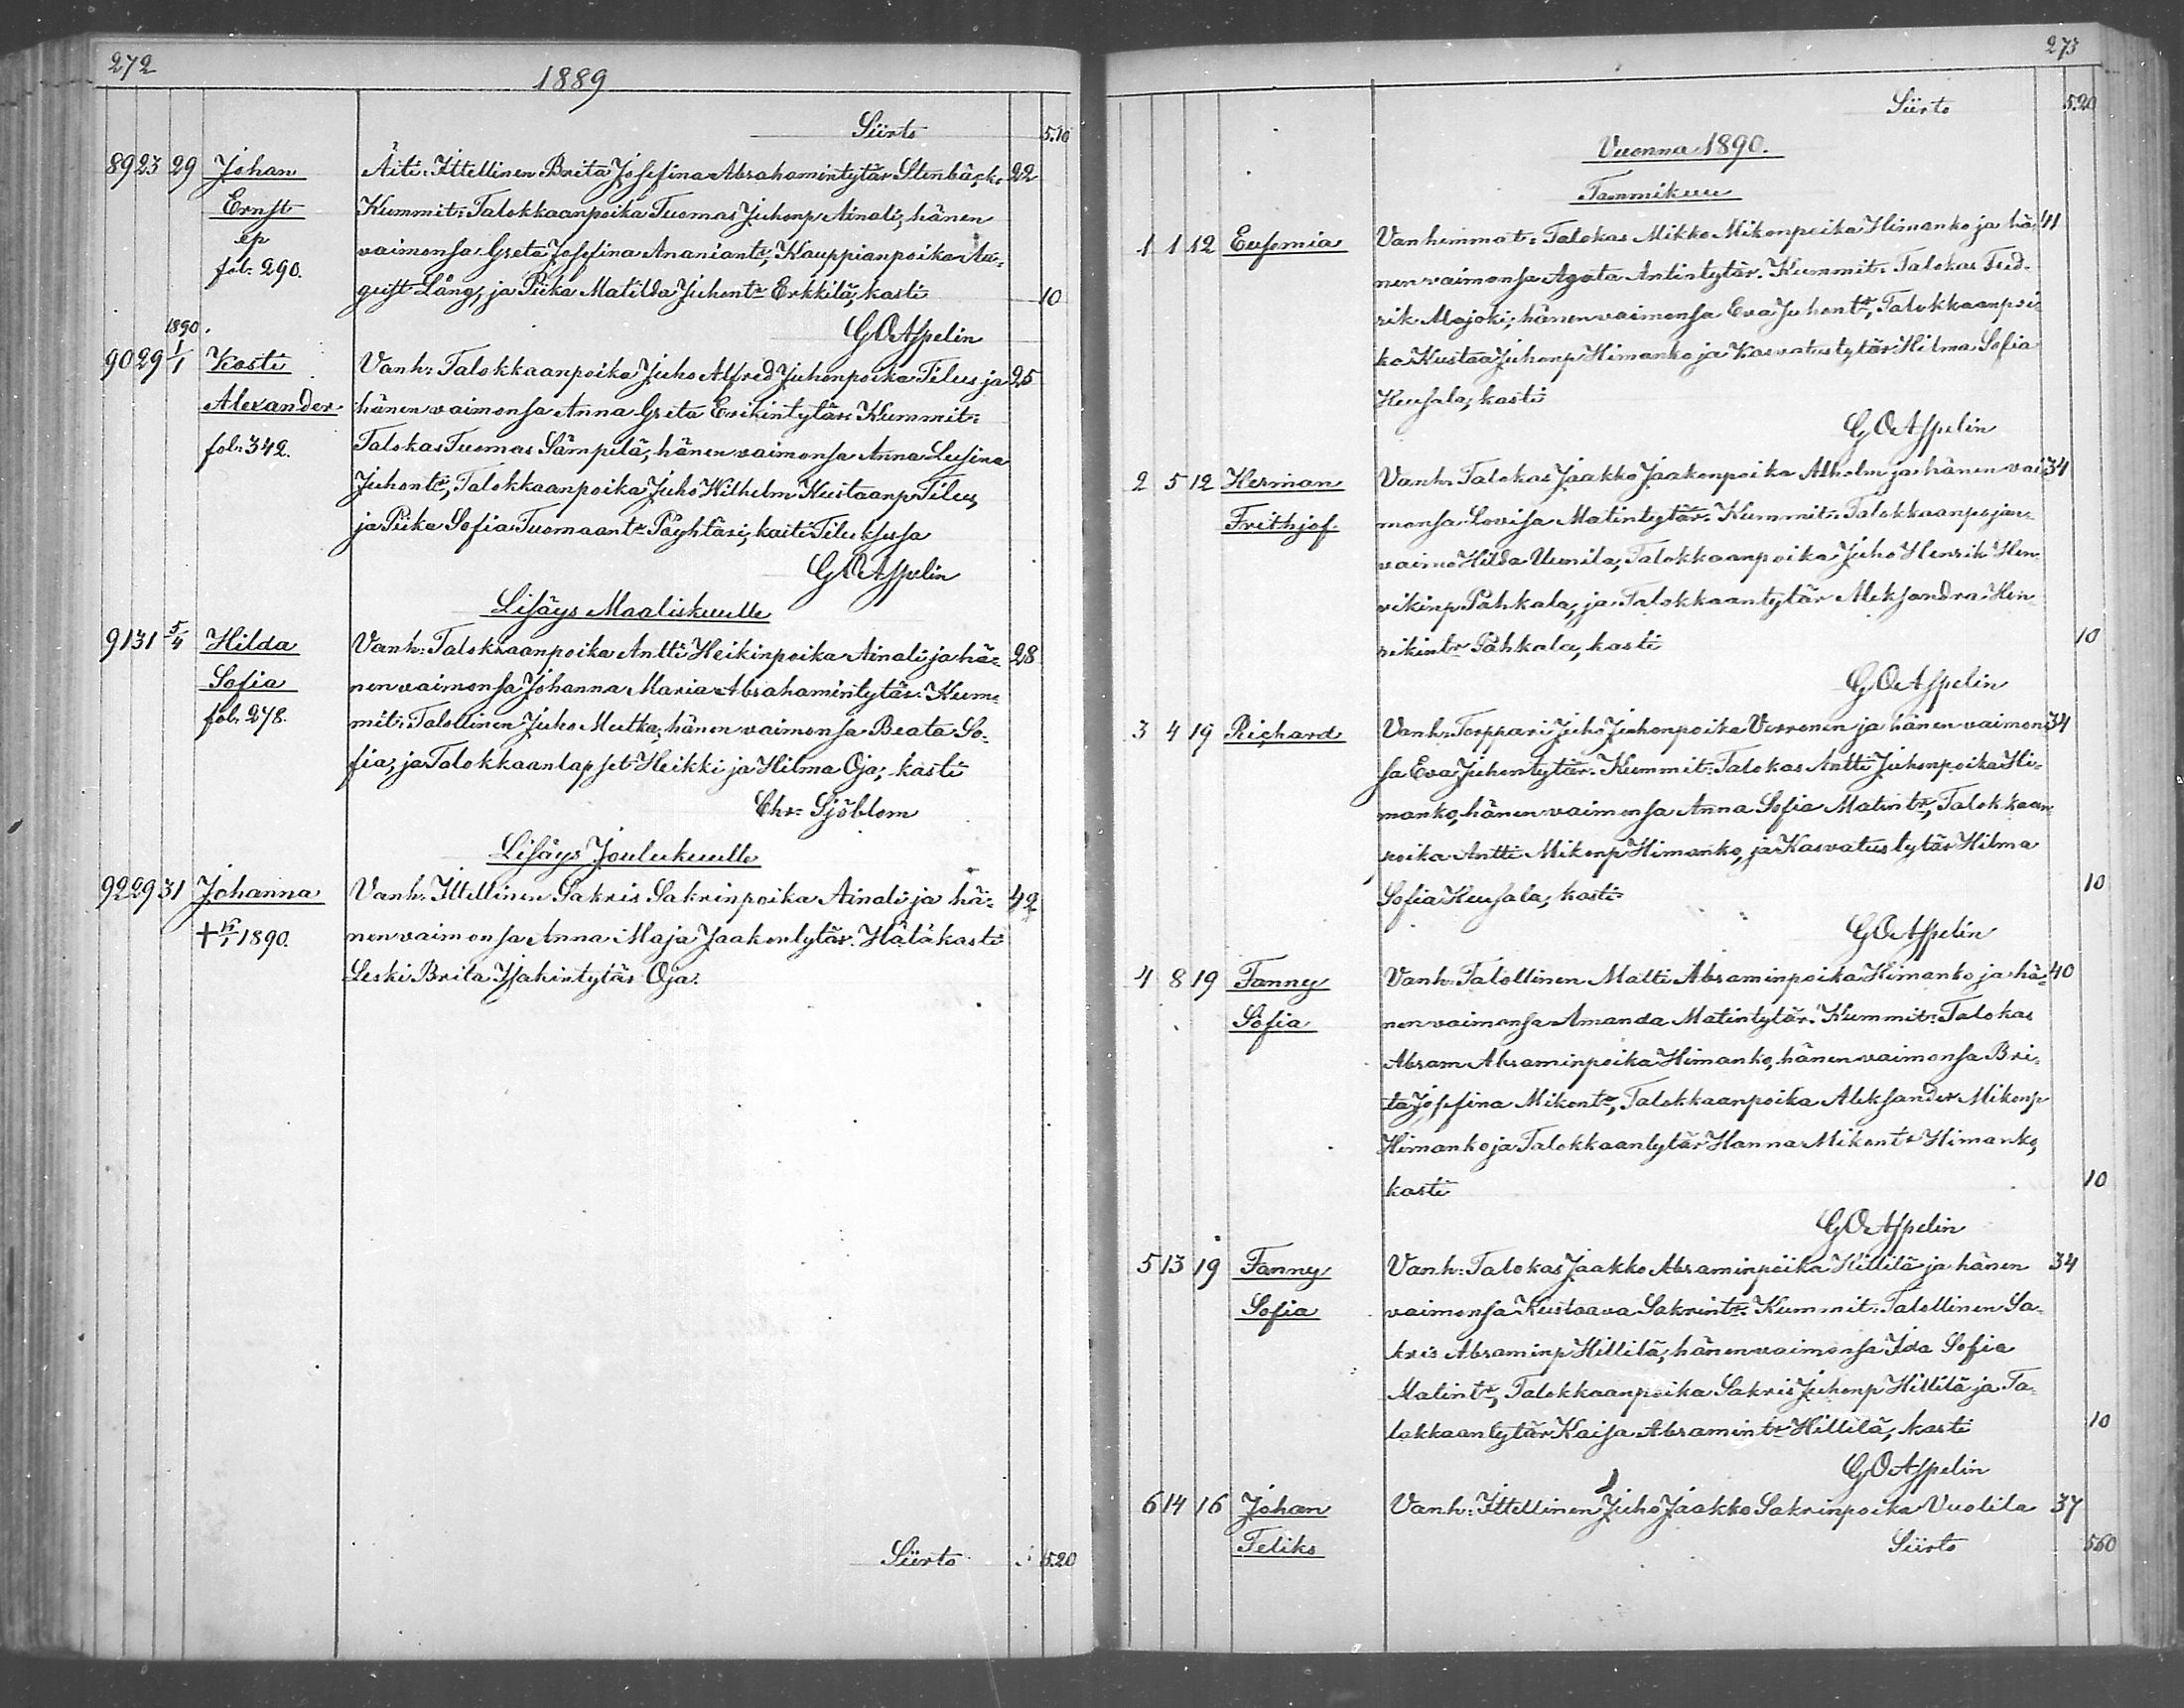 272
1889
Siirto 5.10
89 23 29 Johan Äiti: Ittellinen Brita Josefina Abrahamintytär Stenbäck 22
Ernst Kummit: Talokkaanpoika Tuomas Juhonp Ainali, hänen
ep vaimonsa Greta Josefina Ananiantr, Kauppianpoika Au-
fol. 290. gust Lång, ja Piika Matilda Juhontr Erkkilä, kasti 10
GOAspelin
1890
90 29 1/1 Kosti Vanh: Talokkaanpoika Juho Alfred Juhonpoika Tilus ja 25
Alexander hänen vaimonsa Anna Greta Erikintytär. Kummit:
fol. 342. Talokas Tuomas Sämpilä, hänen vaimonsa Anna Lusina
Juhontr, Talokkaanpoika Juho Wilhelm Kustaanp Tilus,
ja Piika Sofia Tuomaantr Pöyhtäri, kasti Tiluksessa
GOAspelin
Lisäys Maaliskuulle
91 31 5/4 Hilda Vanh: Talokkaanpoika Antti Heikinpoika Ainali ja hä- 28
Sofia nen vaimonsa Johanna Maria Abrahamintytär. Kum-
fol. 278. mit: Talollinen Juho Mutka, hänen vaimonsa Beata So-
fia, ja Talokkaanlapset Heikki ja Hilma Oja, kasti
Chr. Sjöblom
Lisäys Joulukuulle
92 29 31 Johanna Vanh: Ittellinen Sakris Sakrinpoika Ainali ja hä- 42
† 15/1 1890. nen vaimonsa Anna Maja Jaakontytär. Hätäkasti
Leski Brita Isakintytär Oja.
Siirto 5.20
273
Siirto 5.20
Vuonna 1890.
Tammikuu
1 1 12 Eufemia Vanhemmat: Talokas Mikko Mikonpoika Himanko ja hä- 41
nen vaimonsa Agata Antintytär. Kummit: Talokas Fred-
rik Majoki, hänen vaimonsa Eva Juhontr, Talokkaanpoi-
ka Kustaa Juhonp Himanko ja Kasvatustytär Hilma Sofia
Keusala, kasti
GOAspelin
2 5 12 Herman Vanh: Talokas Jaakko Jaakonpoika Alholm ja hänen vai- 34
Frithjof. monsa Lovisa Matintytär. Kummit: Talokkaanpojan-
vaimo Hilda Uunila, Talokkaanpoika Juho Henrik Hen-
rikinp Pahkala, ja Talokkaantytär Aleksandra Hen-
rikintr Pahkala, kasti 10
GOAspelin
3 4 19 Richard Vanh: Torppari Juho Juhonpoika Verronen ja hänen vaimon- 34
sa Eva Juhontytär. Kummit: Talokas Antti Juhonpoika Hi-
manko, hänen vaimonsa Anna Sofia Matintr, Talokkaan
poika Antti Mikonp Himanko, ja Kasvatustytär Hilma
Sofia Keusala, kasti 10
GOAspelin
4 8 19 Fanny Vanh: Talollinen Matti Abraminpoika Himanko ja hä- 40
Sofia nen vaimonsa Amanda Matintytär. Kummit: Talokas
Abram Abraminpoika Himanko, hänen vaimonsa Bri-
ta Josefina Mikontr, Talokkaanpoika Aleksander Mikonp
Himanko ja Talokkaantytär Hanna Mikontr Himanko,
kasti 10
GOAspelin
5 13 19 Fanny Vanh: Talokas Jaakko Abraminpoika Hillilä ja hänen 34
Sofia vaimonsa Kustaava Sakrintr. Kummit: Talollinen Sa-
kris Abraminp Hillilä, hänen vaimonsa Ida Sofia
Matintr, Talokkaanpoika Sakris Juhonp Hillilä ja Ta-
lokkaantytär Kaisa Abramintr Hillilä, kasti 10
GOAspelin
6 14 16 Johan Vanh: Ittellinen Juho Jaakko Sakrinpoika Vuolila 37
Feliks Siirto 5.60